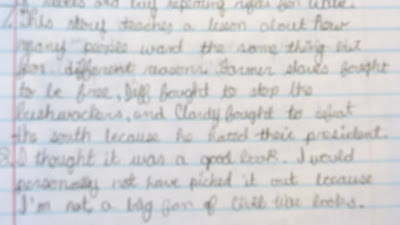 and lay repeating rifles for while.
7. This story teaches a lesson about how
many people want the same thing but
for different reasons. Former slaves fought
to be free, Jeff fought to stop the
bushwackers, and Clardy fought to
the south because he hated their president.
8. I thought it was a good book. I would
personally not have picked it out because
I'm not a big fan of Civil War books.